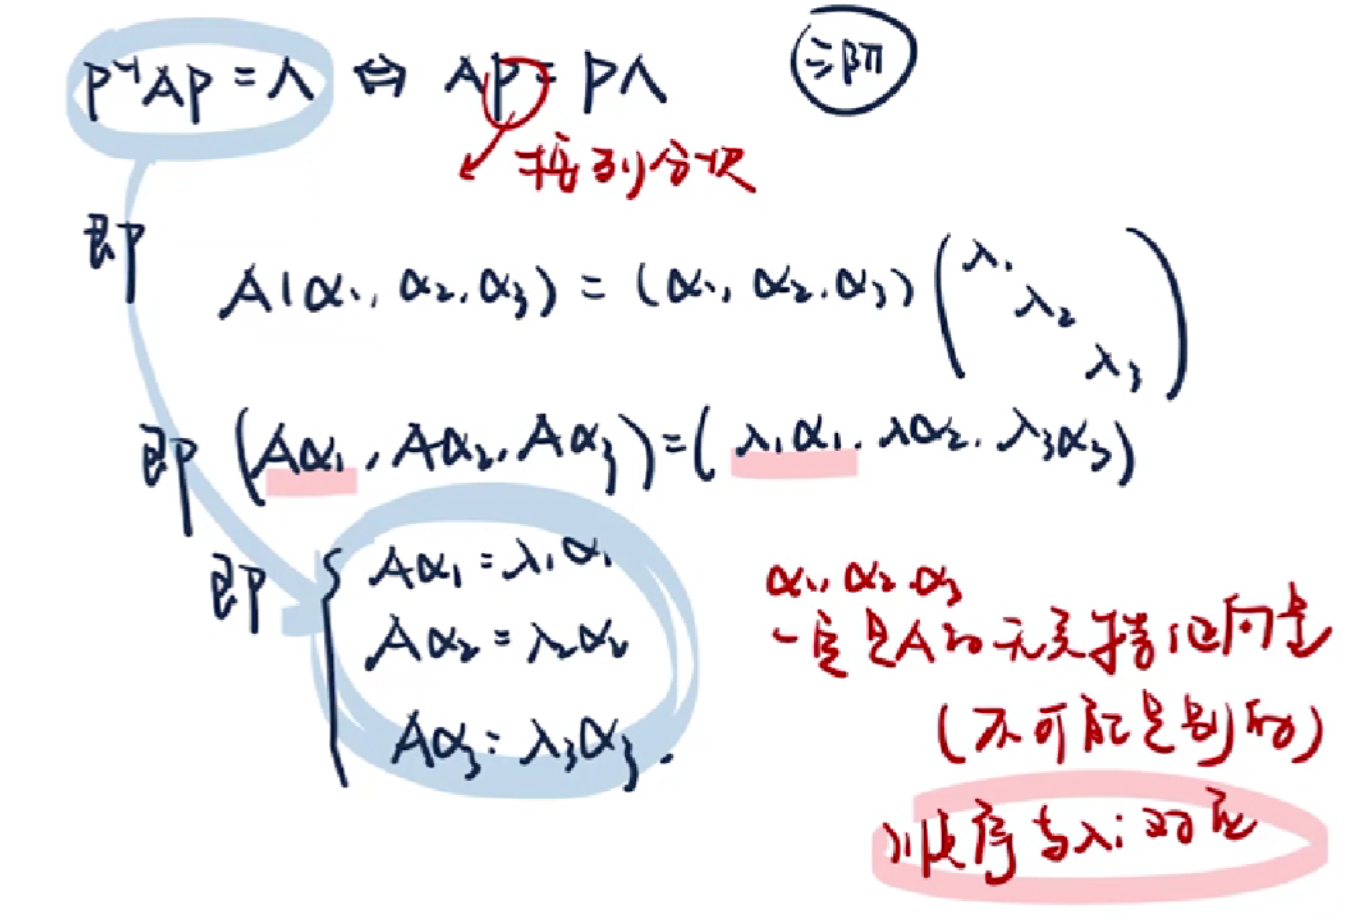 P⁻¹AP = Λ ⇔ AP = PΛ 三阶
按列分块
即
A(α₁, α₂, α₃) = (α₁, α₂, α₃) (λ₁ λ₂ λ₃)
即 (Aα₁, Aα₂, Aα₃) = (λ₁α₁, λα₂, λ₃α₃)
即 { Aα₁ = λ₁α₁
Aα₂ = λ₂α₂
Aα₃ = λ₃α₃.
α₁, α₂, α₃
一定是A的无关特征向量
(不可能是别的)
顺序与λi对应